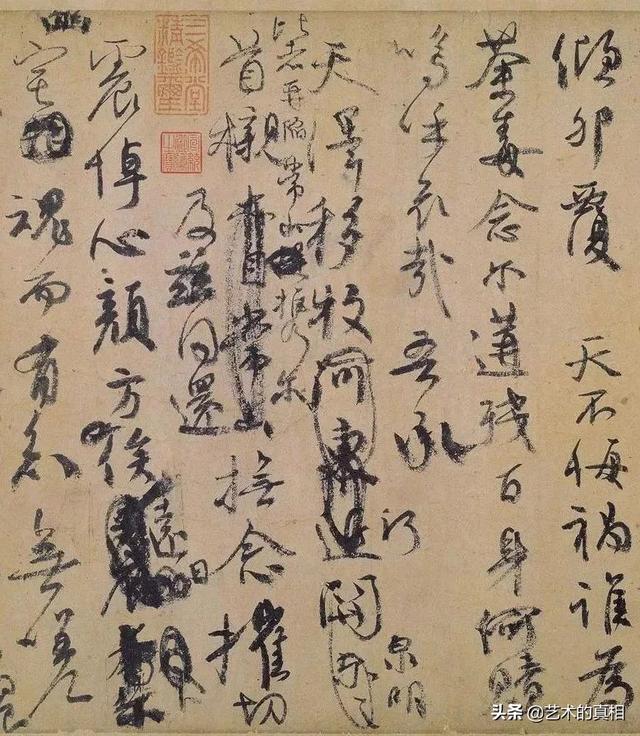 傾卵覆　天不悔禍誰為
荼毒念爾遘殘百身何贖
嗚呼哀哉吾承
天澤移牧河關　泉明
比者再陷常山携爾
首櫬　及茲同還　撫念摧切
震悼心顏方俟遠日
宅　魂而有知無嗟
头条 @艺术的真相